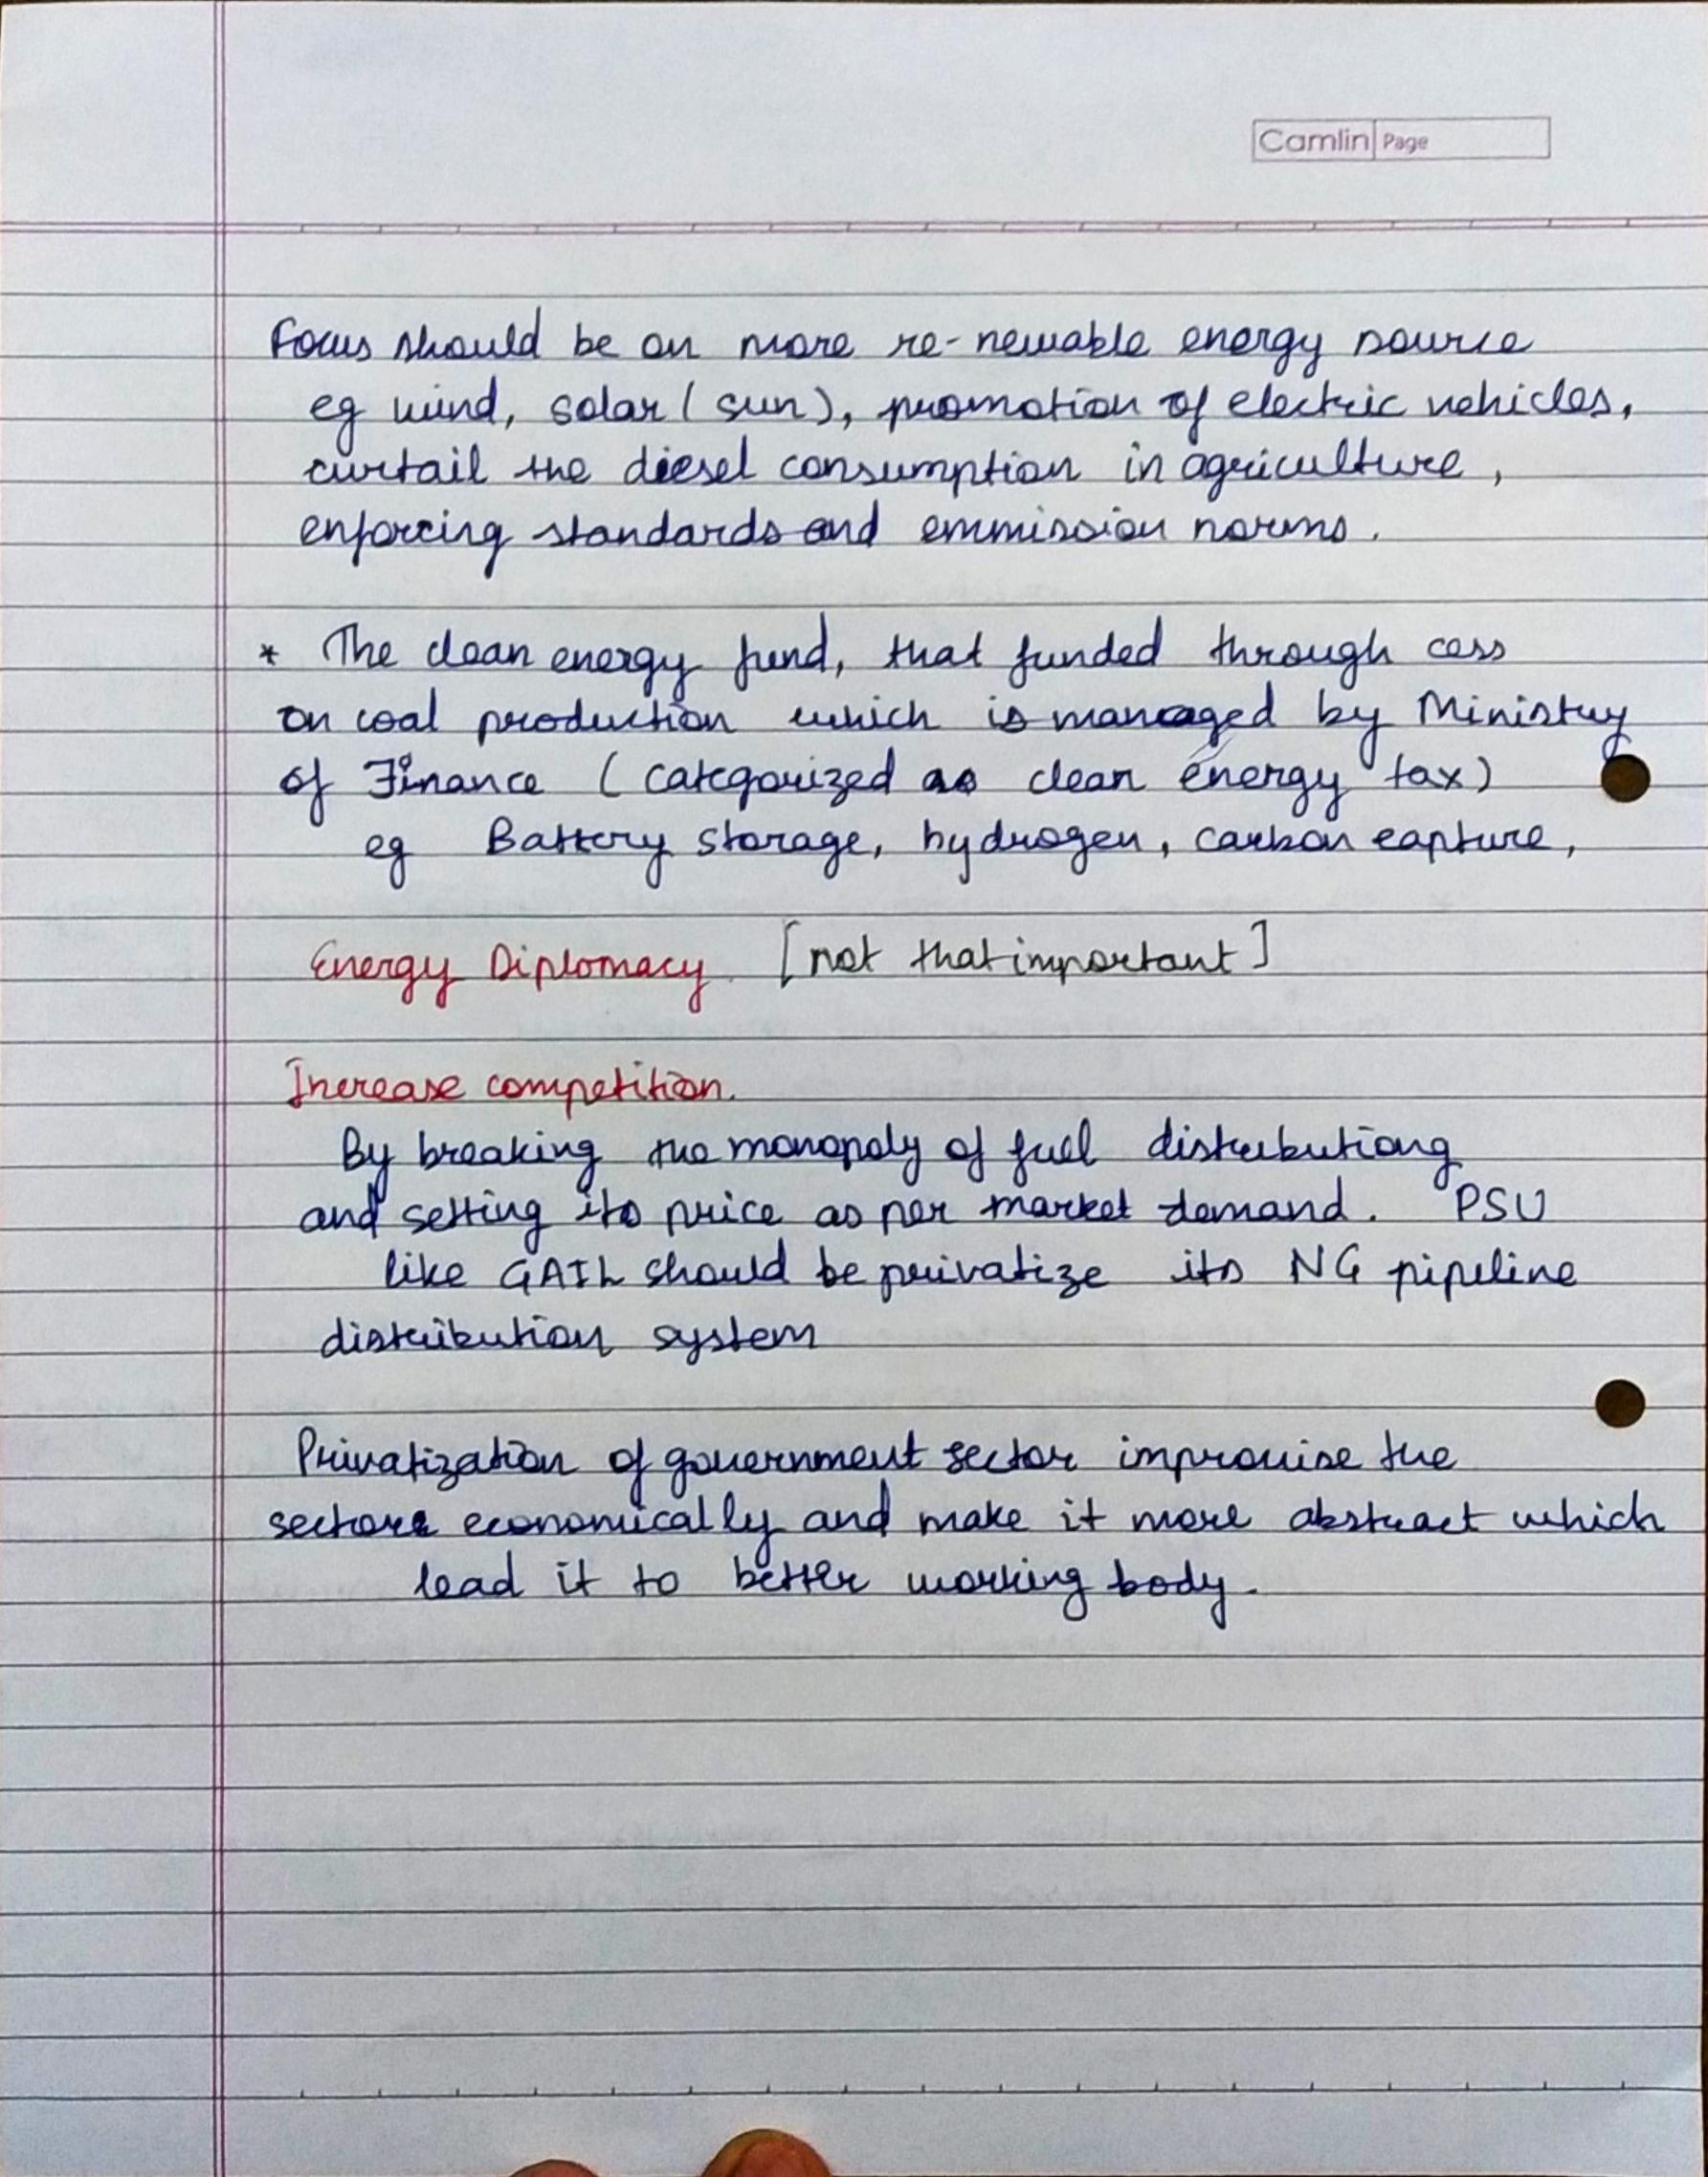 Camlin Page
Focus should be on more re-newable energy source
eg wind, solar (sun), promotion of electric vehicles,
curtail the diesel consumption in agriculture,
enforcing standards and emmission norms.
* The clean energy fund, that funded through cess
on coal production which is managed by Ministry
of Finance (categorized as clean energy tax)
eg Battery storage, hydrogen, carbon capture,
Energy Diplomacy [not that important]
Increase competition.
By breaking the monopoly of fuel distributiong
and setting its price as per market demand. PSU
like GAIL should be privatize its NG pipeline
distribution system
Privatization of government sector improvise the
sectors economically and make it more abstract which
lead it to better working body.